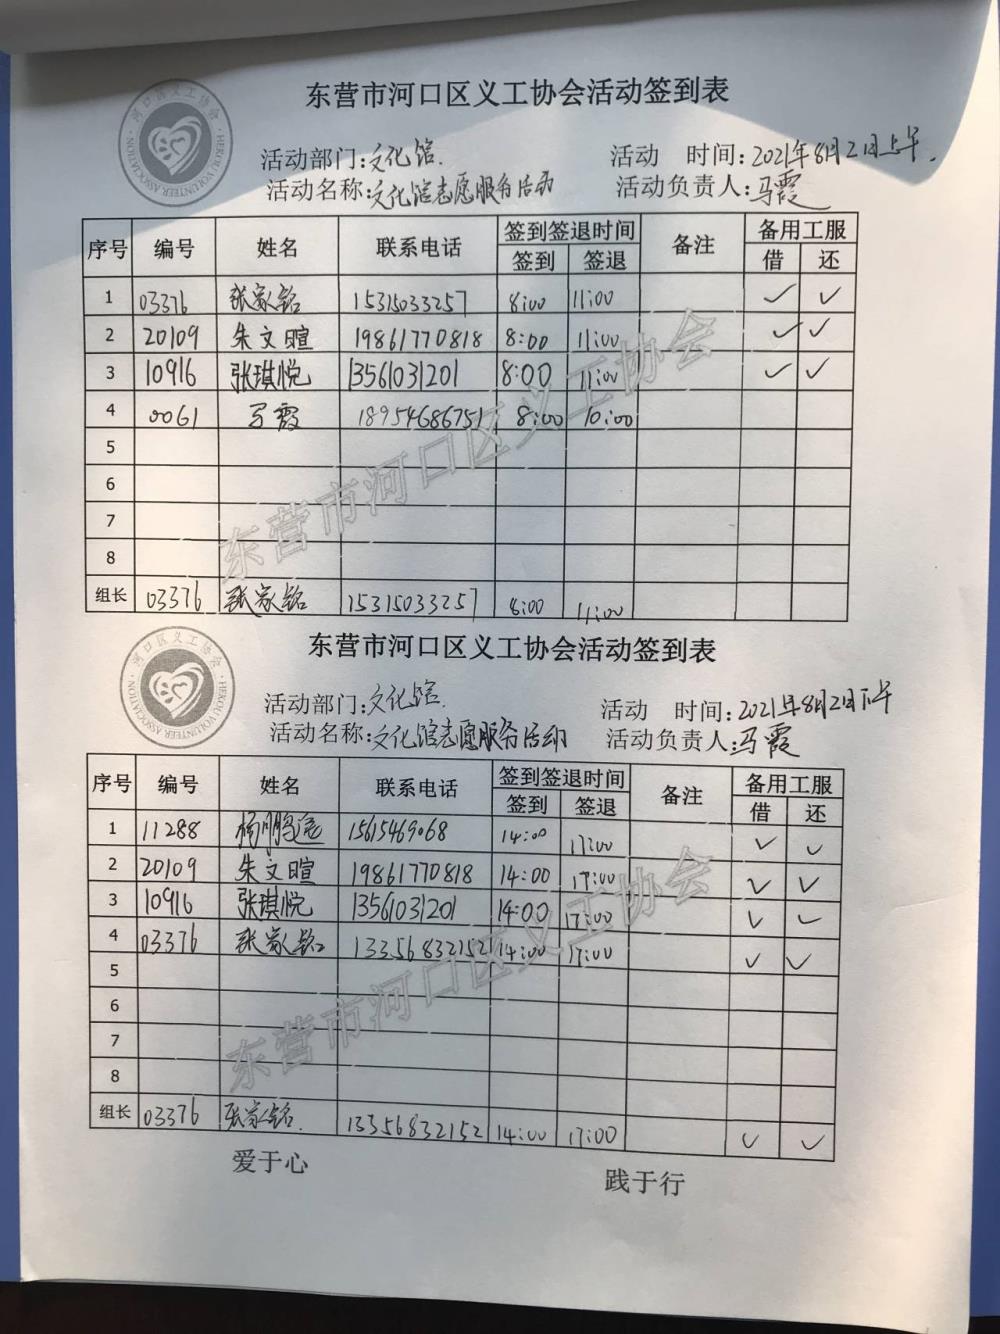 东营市河口区义工协会活动签到表
河口区义工协会
HEKOU VOLUNTEER ASSOCIATION
活动部门:文化馆.
活动 时间:2021年8月2日上午.
活动名称:文化馆志愿服务活动
活动负责人:马霞
序号 编号 姓名 联系电话 签到签退时间 备注 备用工服
签到 签退 借 还
1 03376 张家铭 15315033257 8:00 11:00 ✓ ✓
2 20109 朱文暄 19861770818 8:00 11:00 ✓ ✓
3 10916 张琪悦 13561031201 8:00 11:00 ✓ ✓
4 0061 马霞 18954686751 8:00 10:00
5
6
7
8
组长 03376 张家铭 15315033257 8:00 11:00
东营市河口区义工协会
东营市河口区义工协会活动签到表
河口区义工协会
HEKOU VOLUNTEER ASSOCIATION
活动部门:文化馆.
活动 时间:2021年8月2日下午
活动名称:文化馆志愿服务活动
活动负责人:马霞
序号 编号 姓名 联系电话 签到签退时间 备注 备用工服
签到 签退 借 还
1 11288 杨鹏 15615469068 14:00 17:00 ✓ ✓
2 20109 朱文暄 19861770818 14:00 17:00 ✓ ✓
3 10916 张琪悦 13561031201 14:00 17:00 ✓ ✓
4 03376 张家铭 13356832152 14:00 17:00 ✓ ✓
5
6
7
8
组长 03376 张家铭. 13356832152 14:00 17:00 ✓ ✓
东营市河口区义工协会
爱于心 践于行